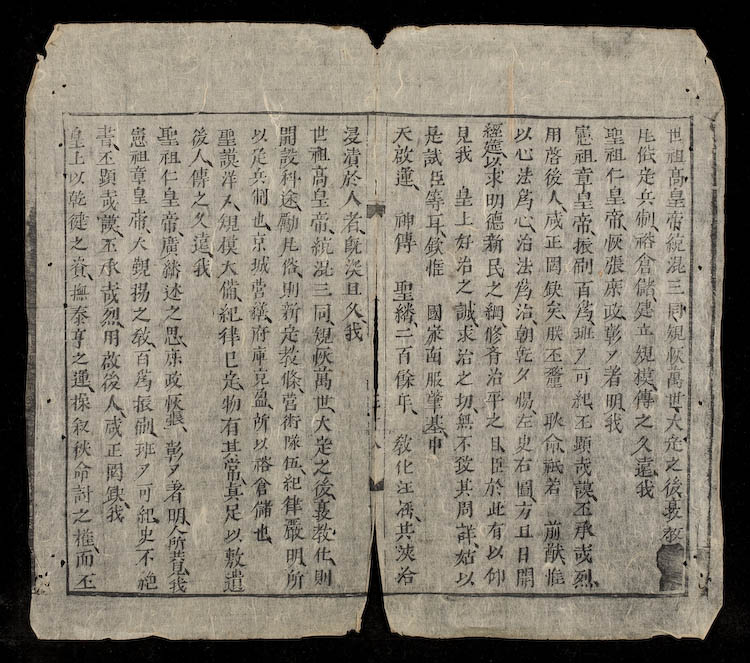 世祖高皇帝統混三同規恢萬世大定之後養教
凨俗定兵制裕倉儲建立規模傳之久遠我
聖祖仁皇帝恢張庶政彰〻著明我
憲祖章皇帝振刷百為班〻可紀丕顯哉謨丕承哉烈
用啓後人咸正罔缺矣朕丕釐 耿命祇若 前猷惟
以心法為心治法為治朝乾夕惕左史右圖方且日開
經筵以求明德新民之綱修齊治平之目臣於此有以仰
見我 皇上好治之誠求治之切無不致其周詳姑以
是試臣等耳欽惟 國家南服肇基中
天啟運 神傳 聖繼二百餘年 教化汪濊其浹洽
浸漬於人者既深且久我
世祖高皇帝統混三同規恢萬世大定之後養教化則
開設科途勵凨俗則新定教條營衛隊伍紀律嚴明所
以定兵制也京城營鎮府庫充盈所以裕倉儲也
聖謨洋〻規模大備紀律已定物有其常真足以敷遺
後人傳之久遠我
聖祖仁皇帝廣繼述之思庶政恢張彰〻著明人所共見我
憲祖章皇帝大觀揚之教百為振刷班〻可紀史不絶
書丕顯哉謨丕承哉烈用啟後人咸正罔缺我
皇上以乾健之資撫泰亨之運操敘秩命討之權而丕